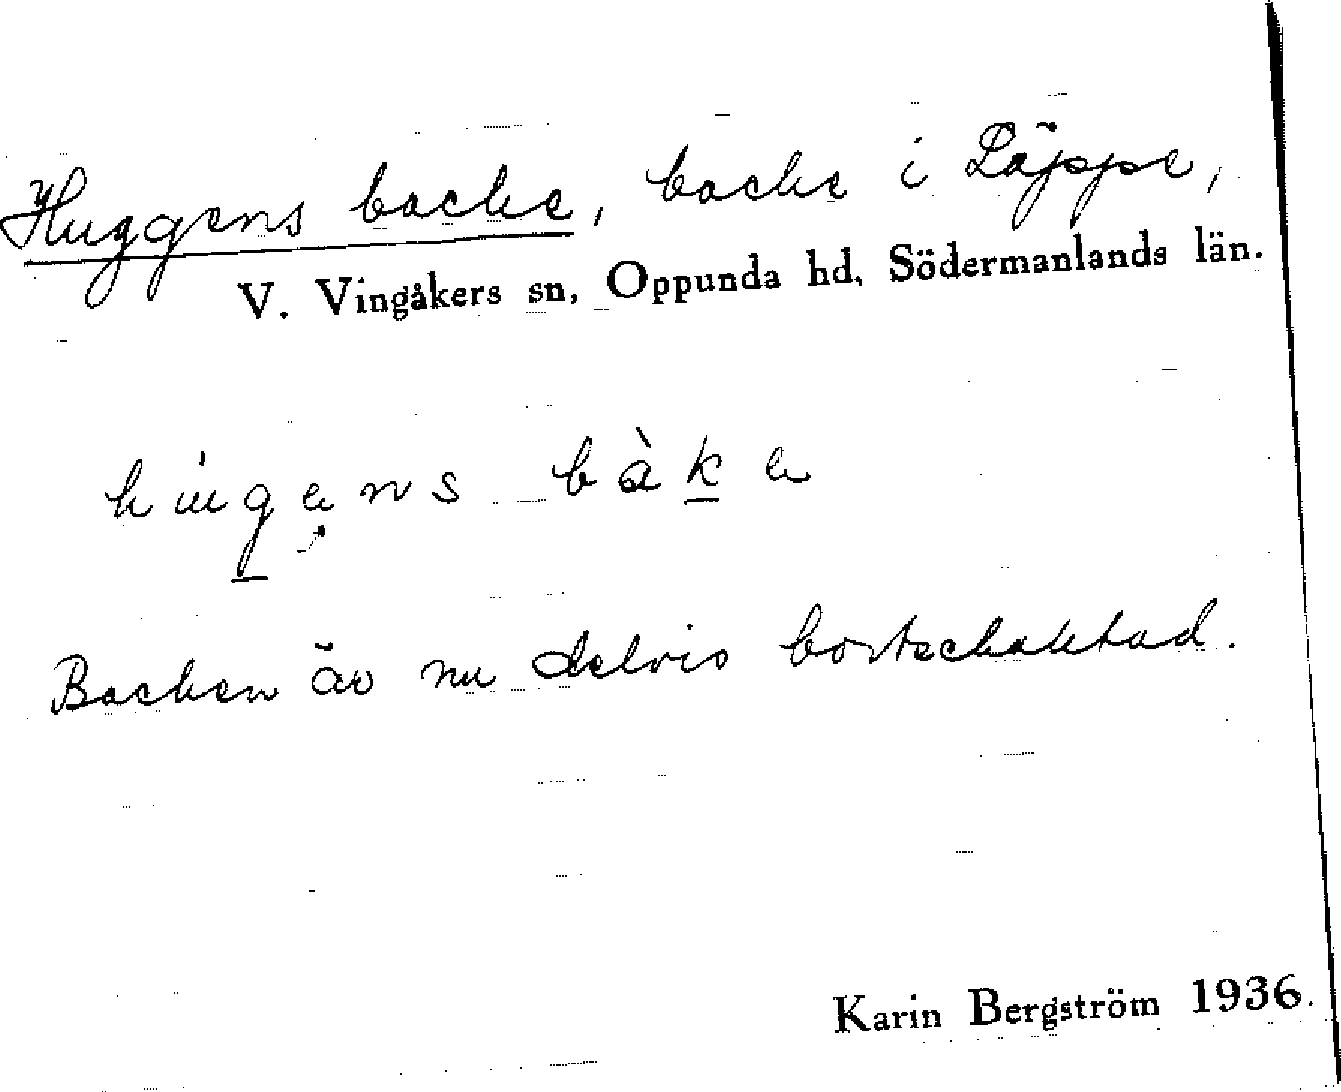 Huggens backe, backe i Läppe,
V. Vingåkers sn, Oppunda hd, Södermanlands län.
húg̲ens bàk̲e
Backen är nu delvis bortschaktad.
Karin Bergström 1936.